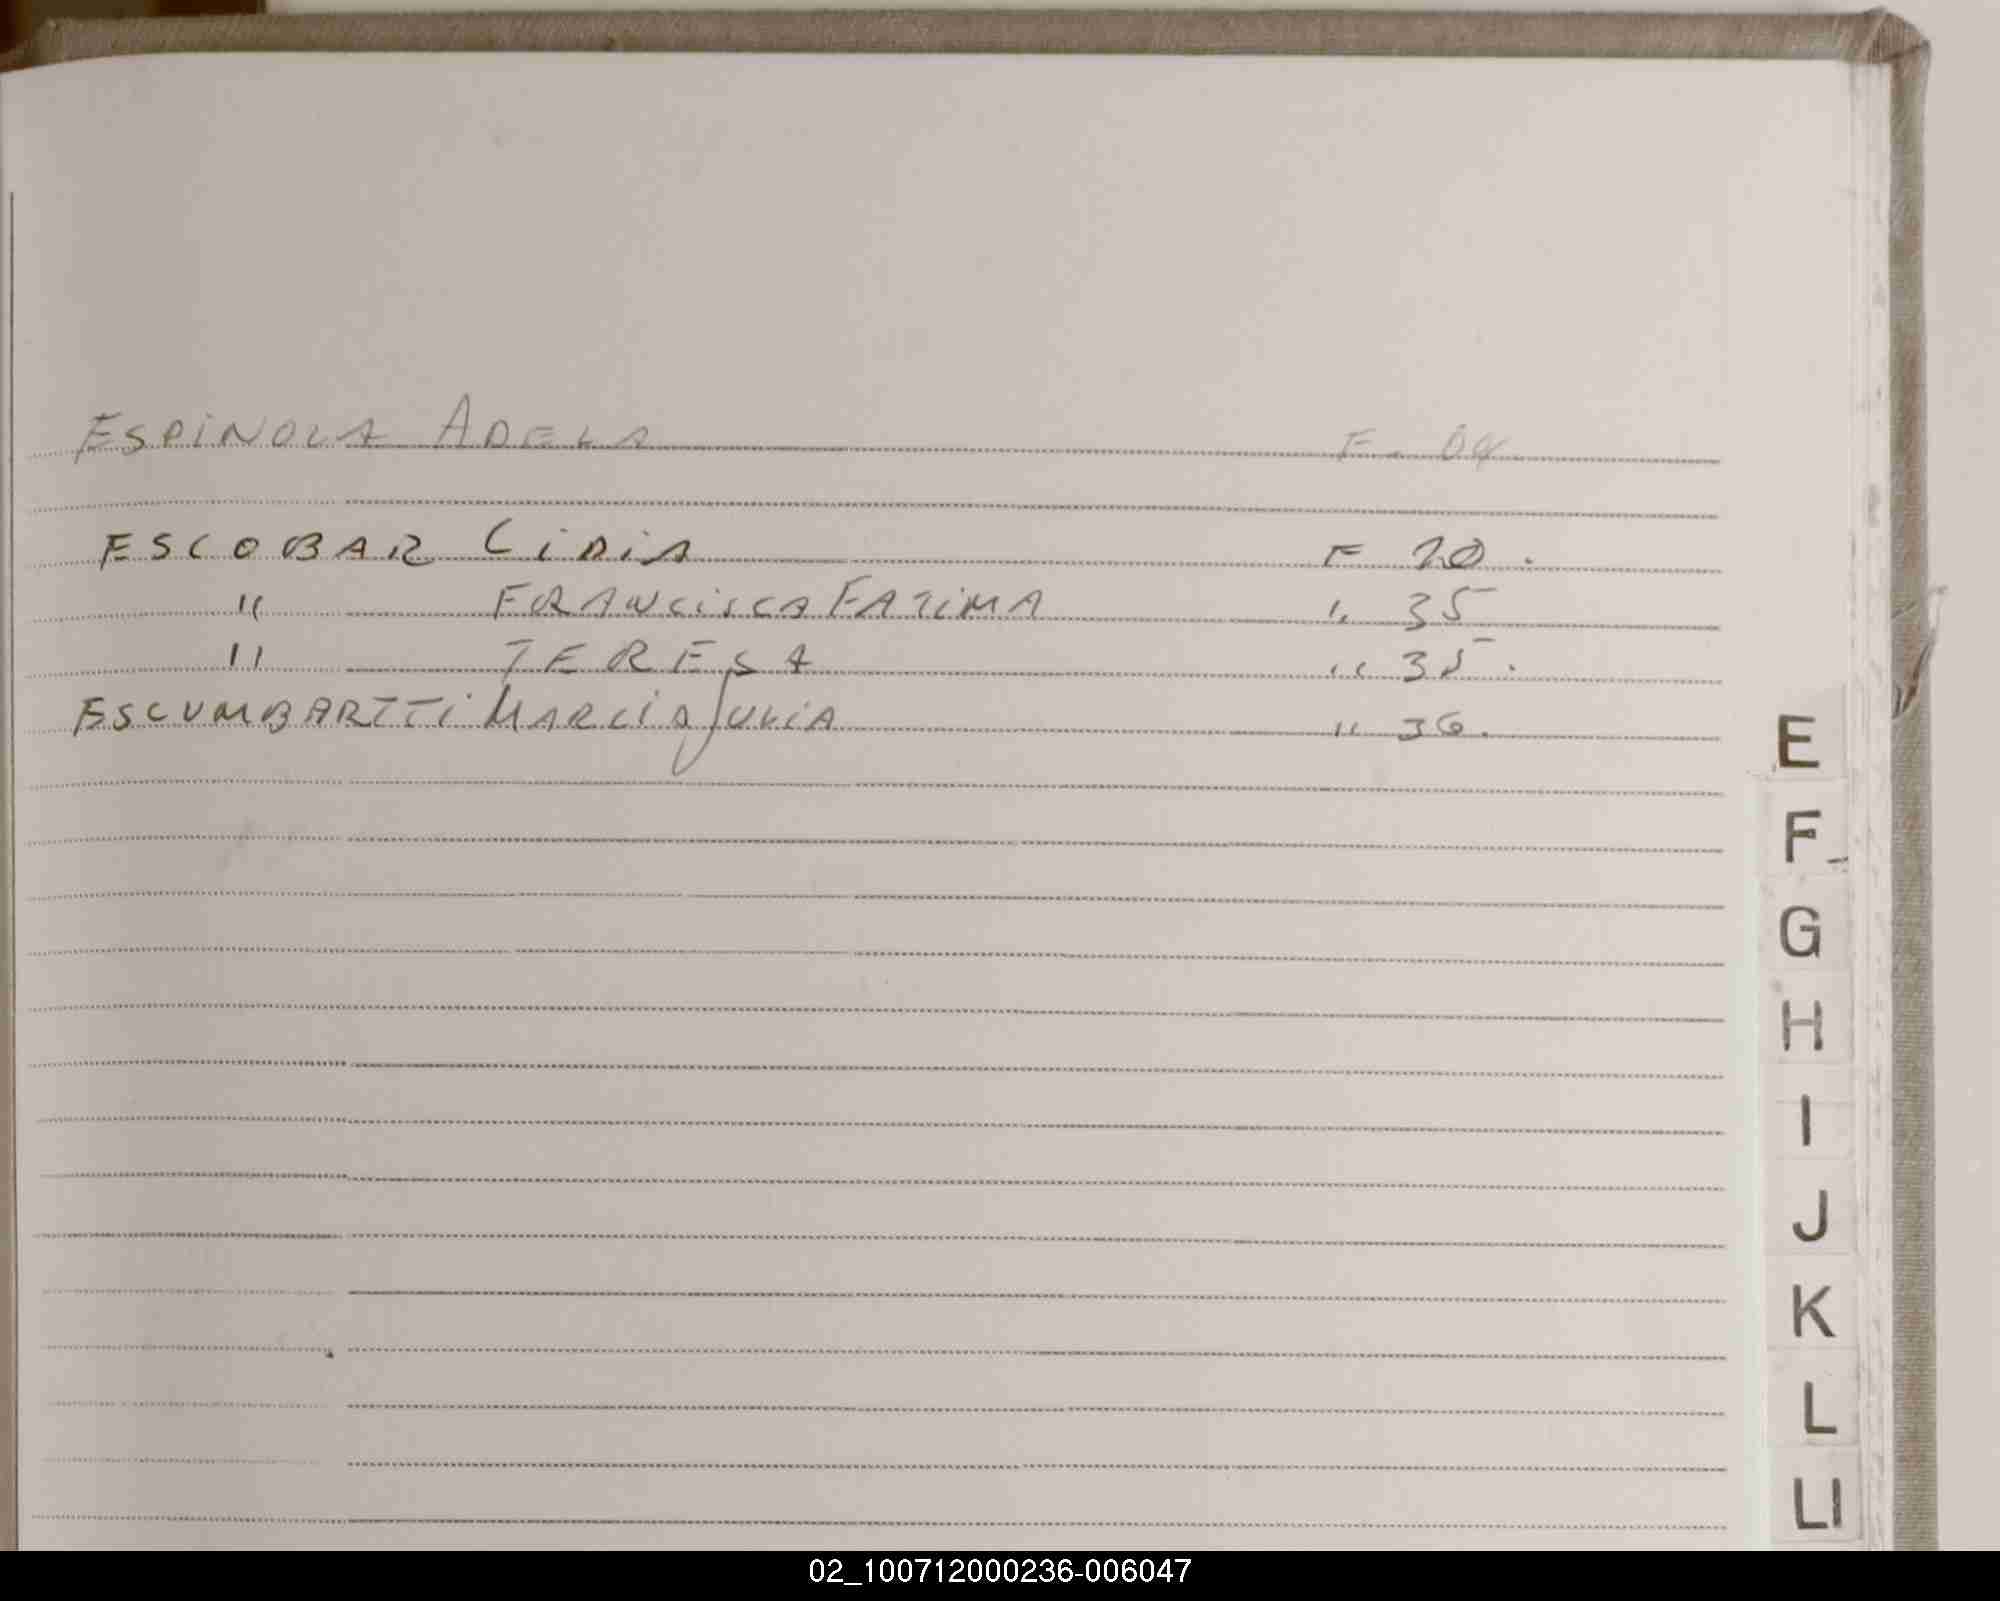 ESPINOLA ADELA F. 04
ESCOBAR LiDiA F 20.
" FRANCISCA FATIMA " 35
" TERESA " 35.
ESCUMBARTTI MARCIA JULIA " 36.
E
F
G
H
I
J
K
L
LL
02_100712000236-006047